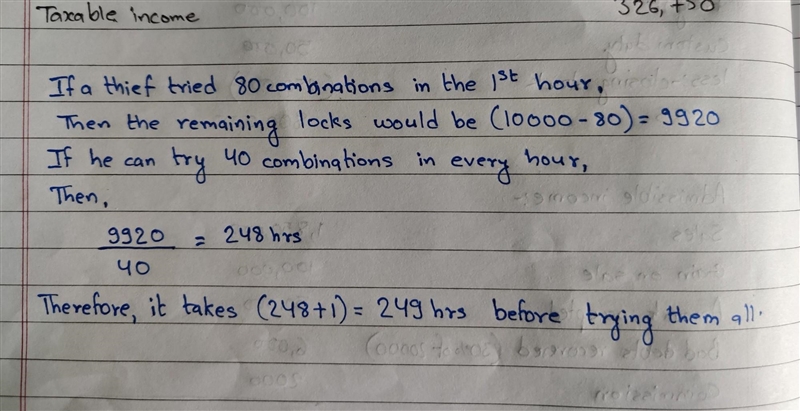 Taxable income
If a thief tried 80 combinations in the 1st hour,
Then the remaining locks would be (10000-80)= 9920
If he can try 40 combinations in every hour,
Then,
9920 = 248 hrs
40
Therefore, it takes (248+1) = 249 hrs before trying them all.